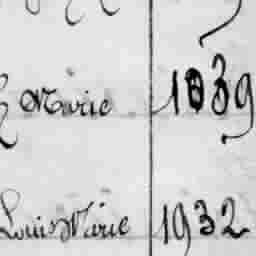 Marie 1039
Louis Marie 1932